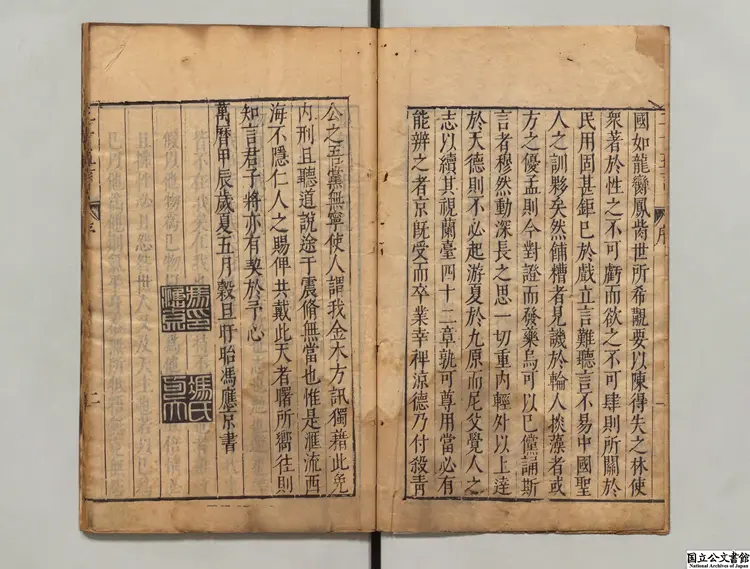 國如龍臠鳳胾世所希覯要以陳得失之林使
衆著於性之不可虧而欲之不可肆則所關於
民用固甚鉅已於戲立言難聽言不易中國聖
人之訓夥矣然餔糟者見譏於輪人掞藻者或
方之優孟則今對證而發藥烏可以已僮誦斯
言者穆然動深長之思一切重内輕外以上達
於天德則不必起游夏於九原而尼父覺人之
志以續其視蘭臺四十二章孰可尊用當必有
能辨之者京旣受而卒業幸裨涼德乃付殺靑
公之吾黨無寧使人謂我金木方訊獨藉此免
内刑且聽道說途于震脩無當也惟是滙流西
海不隱仁人之賜俾共戴此天者曙所嚮往則
知言君子將亦有契於予心
萬曆甲辰歲夏五月穀旦盱眙馮應京書
國立公文書館
National Archives of Japan